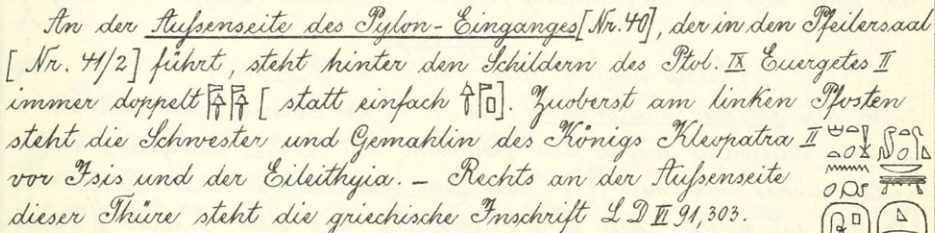 An der Aufsenseite des Pylon-Einganges [Nr. 40], der in den Pfeilersaal
[Nr. 41/2] führt, steht hinter den Schildern des Ptol. IX Euergetes II
immer doppelt [ statt einfach ]. Zuoberst am linken Pfosten
steht die Schwester und Gemahlin des Königs Kleopatra II
vor Isis und der Eileithyia. – Rechts an der Aufsenseite
dieser Thüre steht die griechische Inschrift L D VI 91, 303.